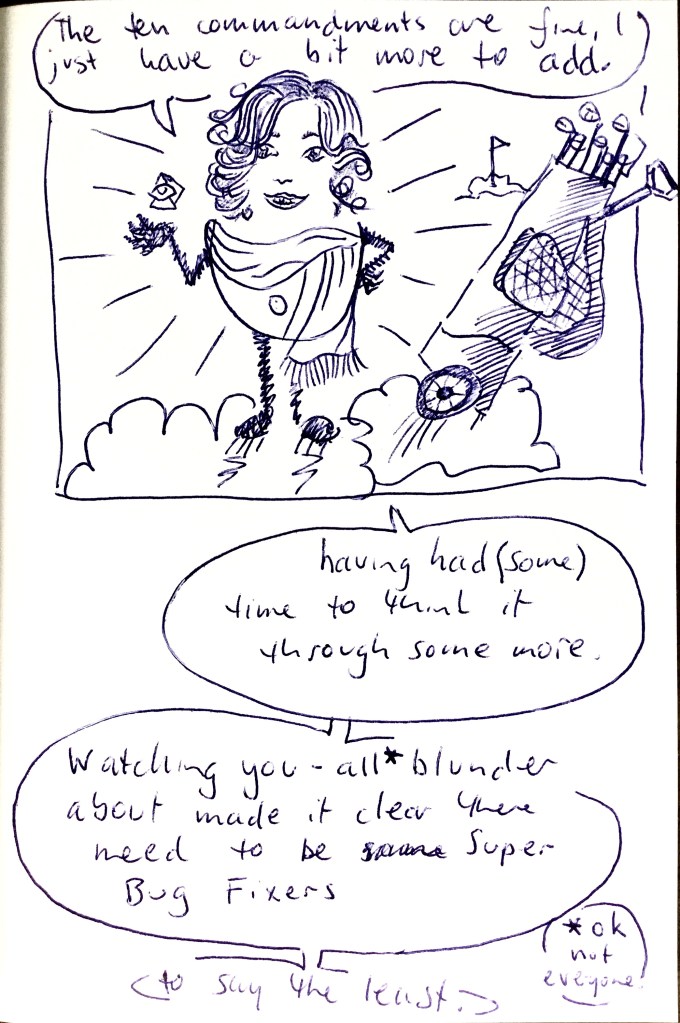 The ten commandments are fine, I
just have a bit more to add.
having had (some)
time to think it
through some more.
Watching you-all* blunder
about made it clear there
need to be some Super
Bug Fixers
*ok
not
everyone.
(to say the least.)